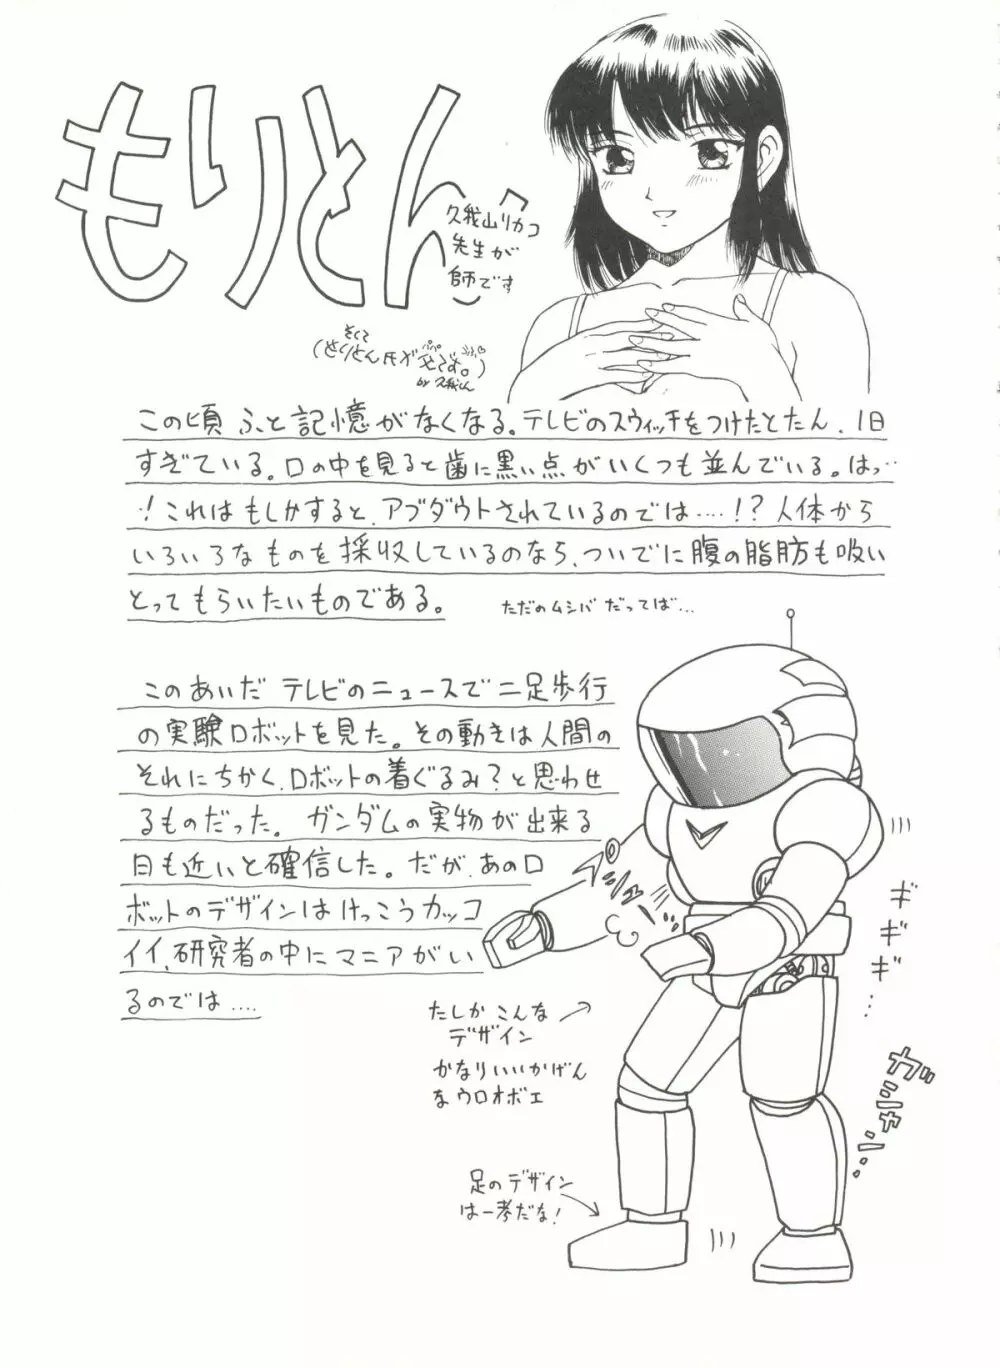 もりとん
久我山リカコ
先生が
師です
by 久我山
この頃ふと記憶がなくなる。テレビのスウィッチをつけたとたん、1日
すぎている。口の中を見ると歯に黒い点がいくつも並んでいる。はっ…
！これはもしかすると、アブダウトされているのでは……！？人体から
いろいろなものを採収しているのなら、ついでに腹の脂肪も吸い
とってもらいたいものである。
ただのムシバだってば…
このあいだテレビのニュースで二足歩行
の実験ロボットを見た。その動きは人間の
それにちかく、ロボットの着ぐるみ？と思わせ
るものだった。ガンダムの実物が出来る
日も近いと確信した。だが、あのロ
ボットのデザインはけっこうカッコ
イイ、研究者の中にマニアがい
るのでは……
ギギギ…
たしかこんな
デザイン
かなりいいかげん
なウロオボエ
ガシャン…
足のデザイン
は一考だな！